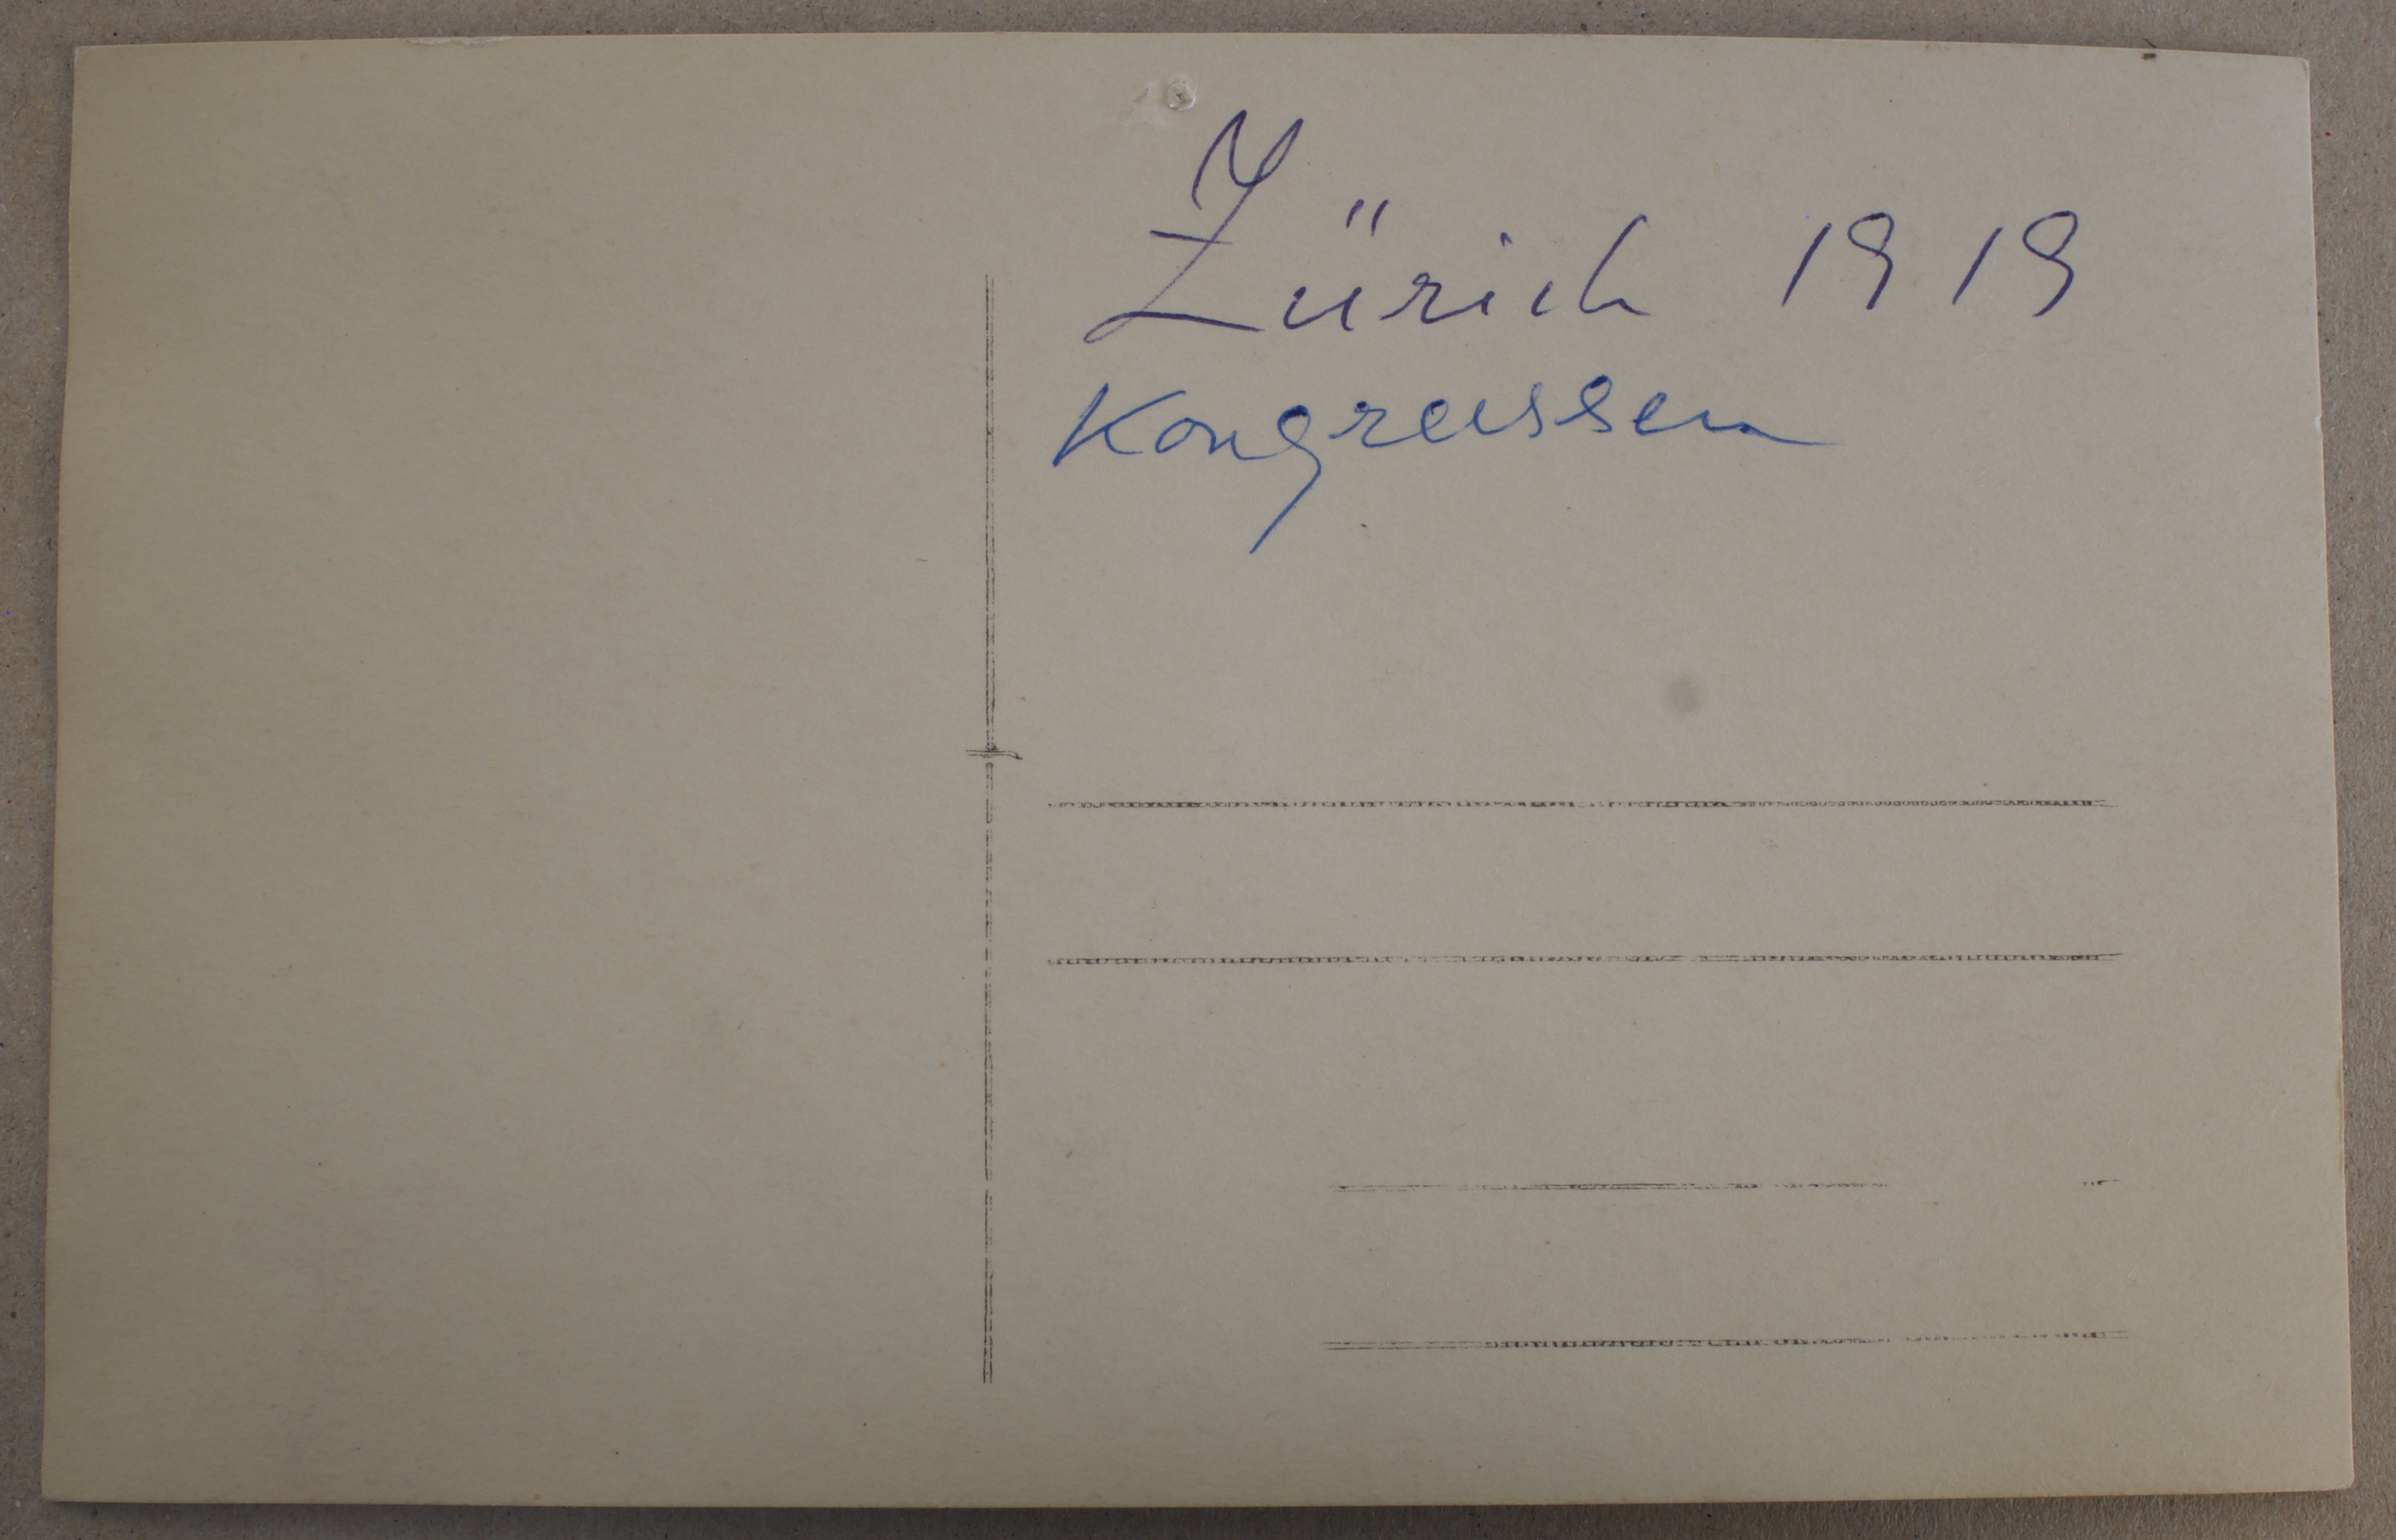 Zürich 1919
Kongressen